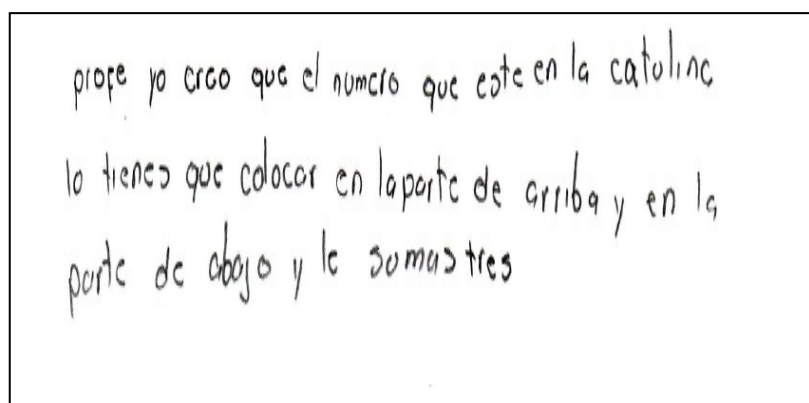 profe yo creo que el numero que este en la catulina
lo tienes que colocar en la parte de arriba y en la
parte de abajo y le somas tres